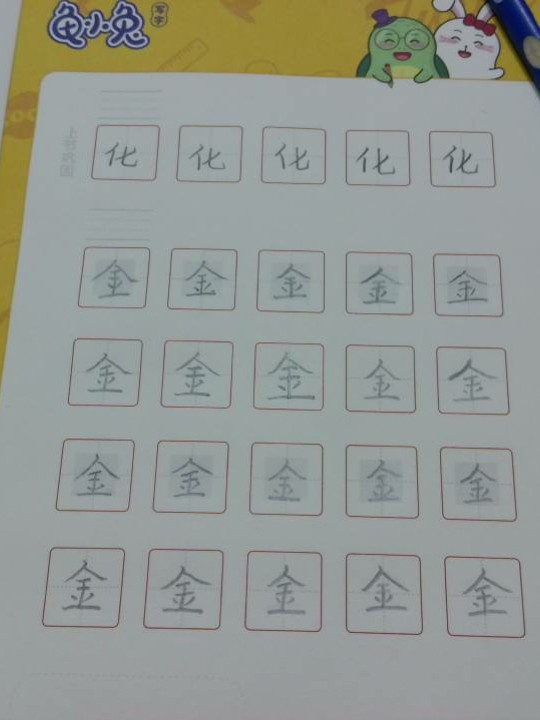 龟小兔
写字
化 化 化 化 化
金 金 金 金 金
金 金 金 金 金
金 金 金 金 金
金 金 金 金 金